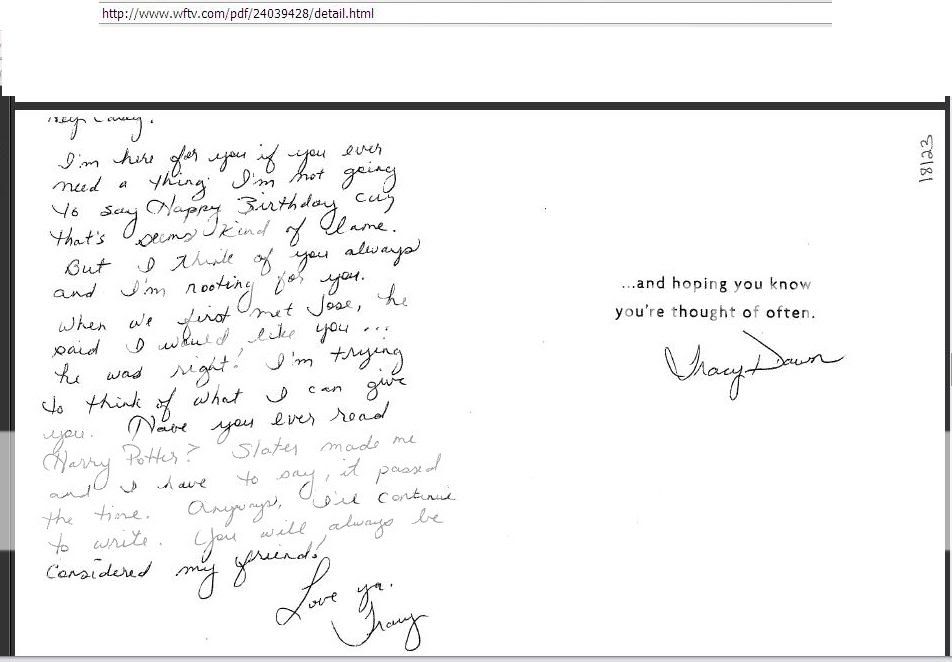 http://www.wftv.com/pdf/24039428/detail.html
I'm here for you if you ever
need a thing. I'm not going
to say Happy Birthday cuz
that's seems kind of lame.
But I think of you always
and I'm rooting for you.
When we first met Jose, he
said I would like you ...
he was right! I'm trying
to think of what I can give
you. Have you ever read
Harry Potter? Slater made me
and I have to say, it passed
the time. Anyways, I'll continue
to write. You will always be
considered my friend!
Love ya.
Tracy
18123
...and hoping you know
you're thought of often.
Tracy Dawn